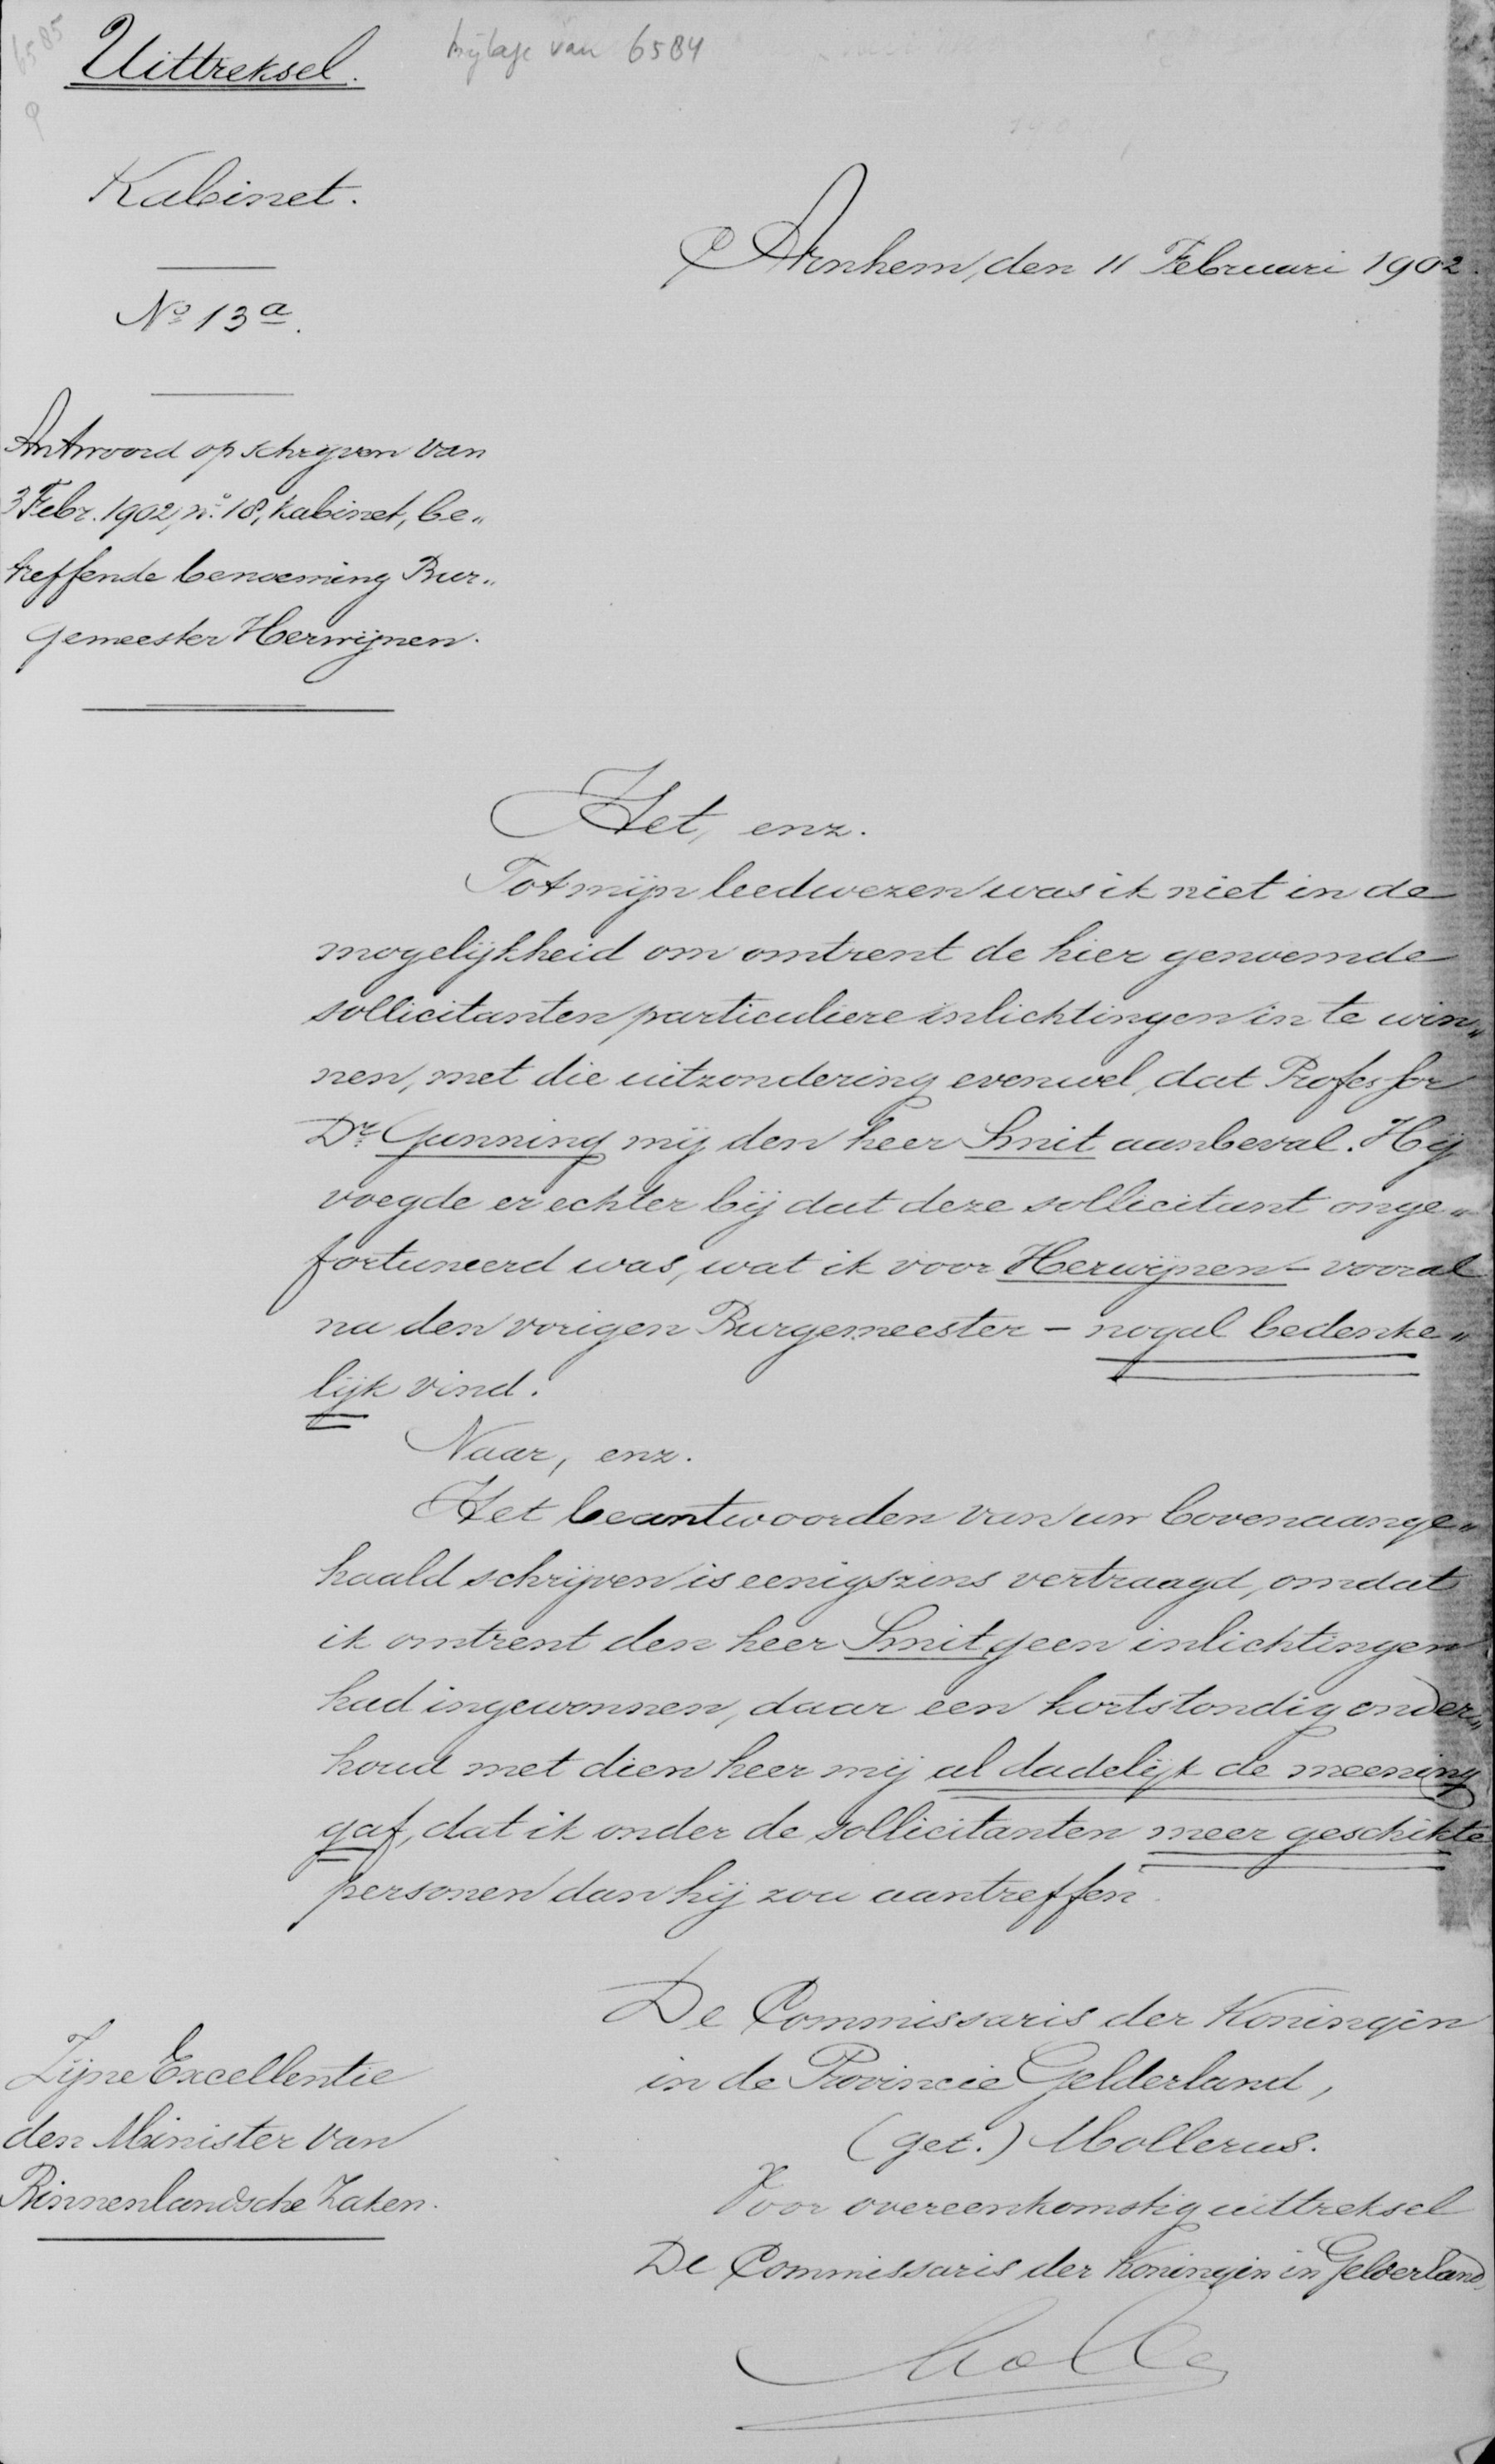 6585
bijlage van 6584
Uittreksel.
Kabinet.
No 13a.
Arnhem, den 11 Februari 1902.
Antwoord op schrijven van
3 Febr. 1902, no. 18, Kabinet, be„
treffende benoeming Bur„
gemeester Herwijnen.
Het, enz.
Tot mijn leedwezen was ik niet in de
mogelijkheid om omtrent de hier genoemde
sollicitanten particuliere inlichtingen in te win„
nen, met die uitzondering evenwel, dat Professor
Dr. Gunning mij den heer Smit aanbeval. Hij
voegde er echter bij dat deze sollicitant onge„
fortuneerd was, wat ik voor Herwijnen – vooral
na den vorigen Burgemeester – nogal bedenke„
lijk vind.
Naar, enz.
Het beantwoorden van uw bovenaange„
haald schrijven is eenigszins vertraagd, omdat
ik omtrent den heer Smit geen inlichtingen
had ingewonnen, daar een kortstondig onder„
houd met dien heer mij al dadelijk de meening
gaf, dat ik onder de sollicitanten meer geschikte
personen dan hij zou aantreffen.
De Commissaris der Koningin
in de Provincie Gelderland,
(get.) Mollerus.
Voor overeenkomstig uittreksel
De Commissaris der Koningin in Gelderland,
Zijne Excellentie
den Minister van
Binnenlandsche Zaken.